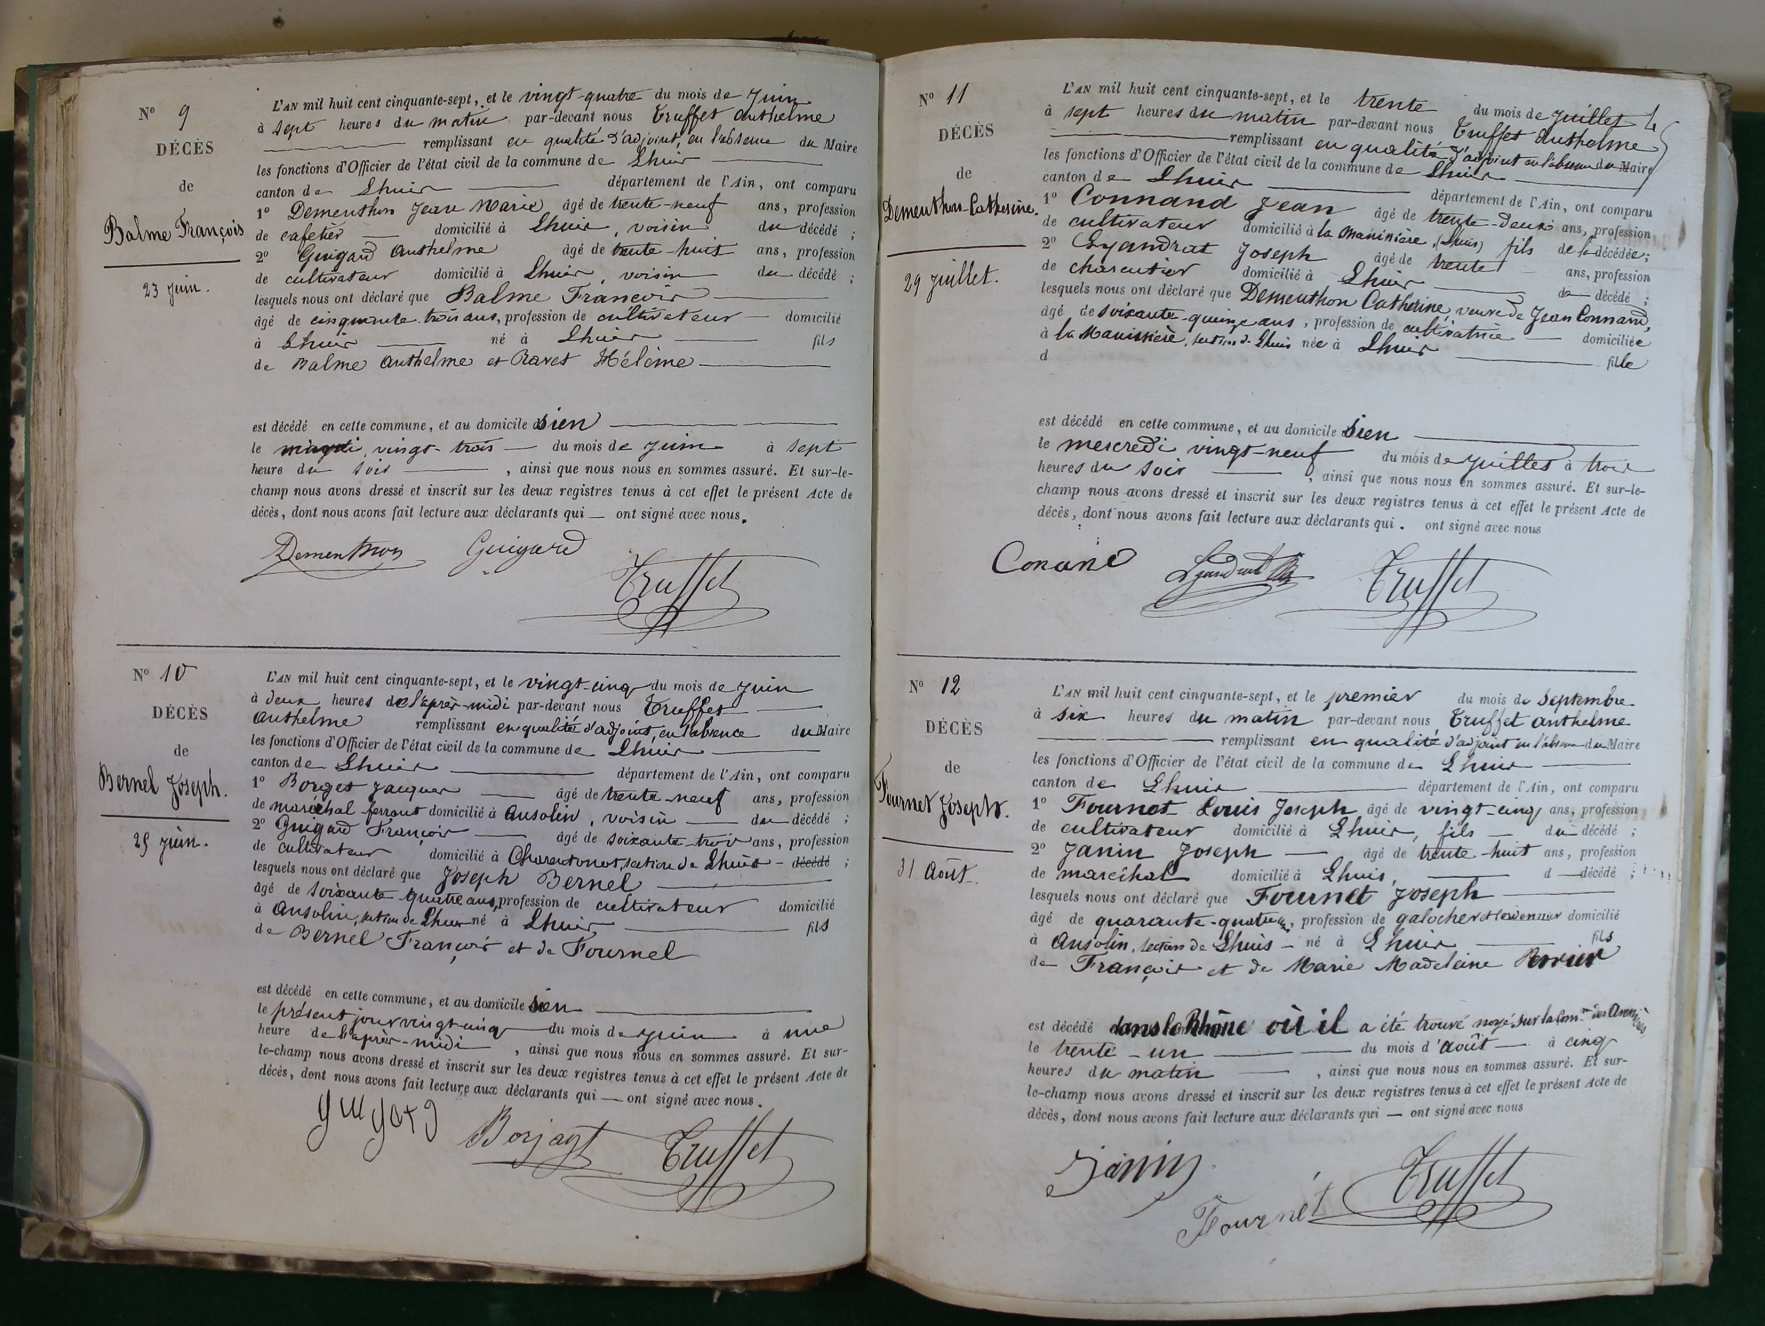 N° 9
DÉCÈS
de
Balme François
23 juin.
L'AN mil huit cent cinquante-sept, et le vingt-quatre du mois de juin
à sept heures du matin par-devant nous Truffet Anthelme
remplissant en qualité d'adjoint, en l'absence du Maire
les fonctions d'Officier de l'état civil de la commune de Lhuis
canton de Lhuis département de l'Ain, ont comparu
1° Dementhon Jean Marie, âgé de trente-neuf ans, profession
de cafetier domicilié à Lhuis, voisin du décédé ;
2° Guigard Anthelme âgé de trente-huit ans, profession
de cultivateur domicilié à Lhuis, voisin du décédé ;
lesquels nous ont déclaré que Balme François
âgé de cinquante-trois ans, profession de cultivateur domicilié
à Lhuis né à Lhuis fils
de Balme Anthelme et Ravet Hélène
est décédé en cette commune, et au domicile sien
le mardi, vingt-trois du mois de juin à sept
heure du soir, ainsi que nous nous en sommes assuré. Et sur-le-
champ nous avons dressé et inscrit sur les deux registres tenus à cet effet le présent Acte de
décès, dont nous avons fait lecture aux déclarants qui ont signé avec nous.
Dementhon Guigard
Truffet
N° 10
DÉCÈS
de
Bernel Joseph.
25 juin.
L'AN mil huit cent cinquante-sept, et le vingt-cinq du mois de juin
à deux heures de l'après-midi par-devant nous Truffet
Anthelme remplissant en qualité d'adjoint, en l'absence du Maire
les fonctions d'Officier de l'état civil de la commune de Lhuis
canton de Lhuis département de l'Ain, ont comparu
1° Borget Jacques âgé de trente-neuf ans, profession
de maréchal-ferrant domicilié à Ansolin, voisin du décédé ;
2° Guigard François âgé de soixante-trois ans, profession
de cultivateur domicilié à Charentonot, section de Lhuis décédé ;
lesquels nous ont déclaré que Joseph Bernel
âgé de soixante-quatre ans, profession de cultivateur domicilié
à Ansolin, section de Lhuis né à Lhuis fils
de Bernel François et de Fournel
est décédé en cette commune, et au domicile sien
le présent jour vingt-cinq du mois de juin à une
heure de l'après-midi, ainsi que nous nous en sommes assuré. Et sur-
le-champ nous avons dressé et inscrit sur les deux registres tenus à cet effet le présent Acte de
décès, dont nous avons fait lecture aux déclarants qui ont signé avec nous.
guigard Borjget Truffet
N° 11
DÉCÈS
de
Dementhon Catherine.
29 juillet.
L'AN mil huit cent cinquante-sept, et le trente du mois de juillet
à sept heures du matin par-devant nous Truffet Anthelme
remplissant en qualité d'adjoint en l'absence du Maire
les fonctions d'Officier de l'état civil de la commune de Lhuis
canton de Lhuis département de l'Ain, ont comparu
1° Connand Jean âgé de trente-deux ans, profession
de cultivateur domicilié à la Maninière (Lhuis) fils de la décédée ;
2° Gyandrat Joseph âgé de trente ans, profession
de charcutier domicilié à Lhuis d décédé ;
lesquels nous ont déclaré que Dementhon Catherine, veuve de Jean Connand,
âgé de soixante-quinze ans, profession de cultivatrice domiciliée
à la Maninière, section de Lhuis née à Lhuis
d fille
est décédé en cette commune, et au domicile sien
le mercredi vingt-neuf du mois de juillet à trois
heures du soir, ainsi que nous nous en sommes assuré. Et sur-le-
champ nous avons dressé et inscrit sur les deux registres tenus à cet effet le présent Acte de
décès, dont nous avons fait lecture aux déclarants qui . ont signé avec nous
Conand Truffet
N° 12
DÉCÈS
de
Fournet Joseph.
31 Août.
L'AN mil huit cent cinquante-sept, et le premier du mois de Septembre
à six heures du matin par-devant nous Truffet Anthelme
remplissant en qualité d'adjoint en l'absence du Maire
les fonctions d'Officier de l'état civil de la commune de Lhuis
canton de Lhuis département de l'Ain, ont comparu
1° Fournet Louis Joseph âgé de vingt-cinq ans, profession
de cultivateur domicilié à Lhuis, fils du décédé ;
2° Janin Joseph âgé de trente-huit ans, profession
de maréchal domicilié à Lhuis, d décédé ;
lesquels nous ont déclaré que Fournet Joseph
âgé de quarante-quatre, profession de galocher et domicilié
à Ansolin, section de Lhuis né à Lhuis fils
de François et de Marie Madeleine Perrier
est décédé dans le Rhône où il a été trouvé noyé sur la
le trente-un du mois d'août à cinq
heures du matin, ainsi que nous nous en sommes assuré. Et sur-
le-champ nous avons dressé et inscrit sur les deux registres tenus à cet effet le présent Acte de
décès, dont nous avons fait lecture aux déclarants qui ont signé avec nous
Janin Truffet
Fournet